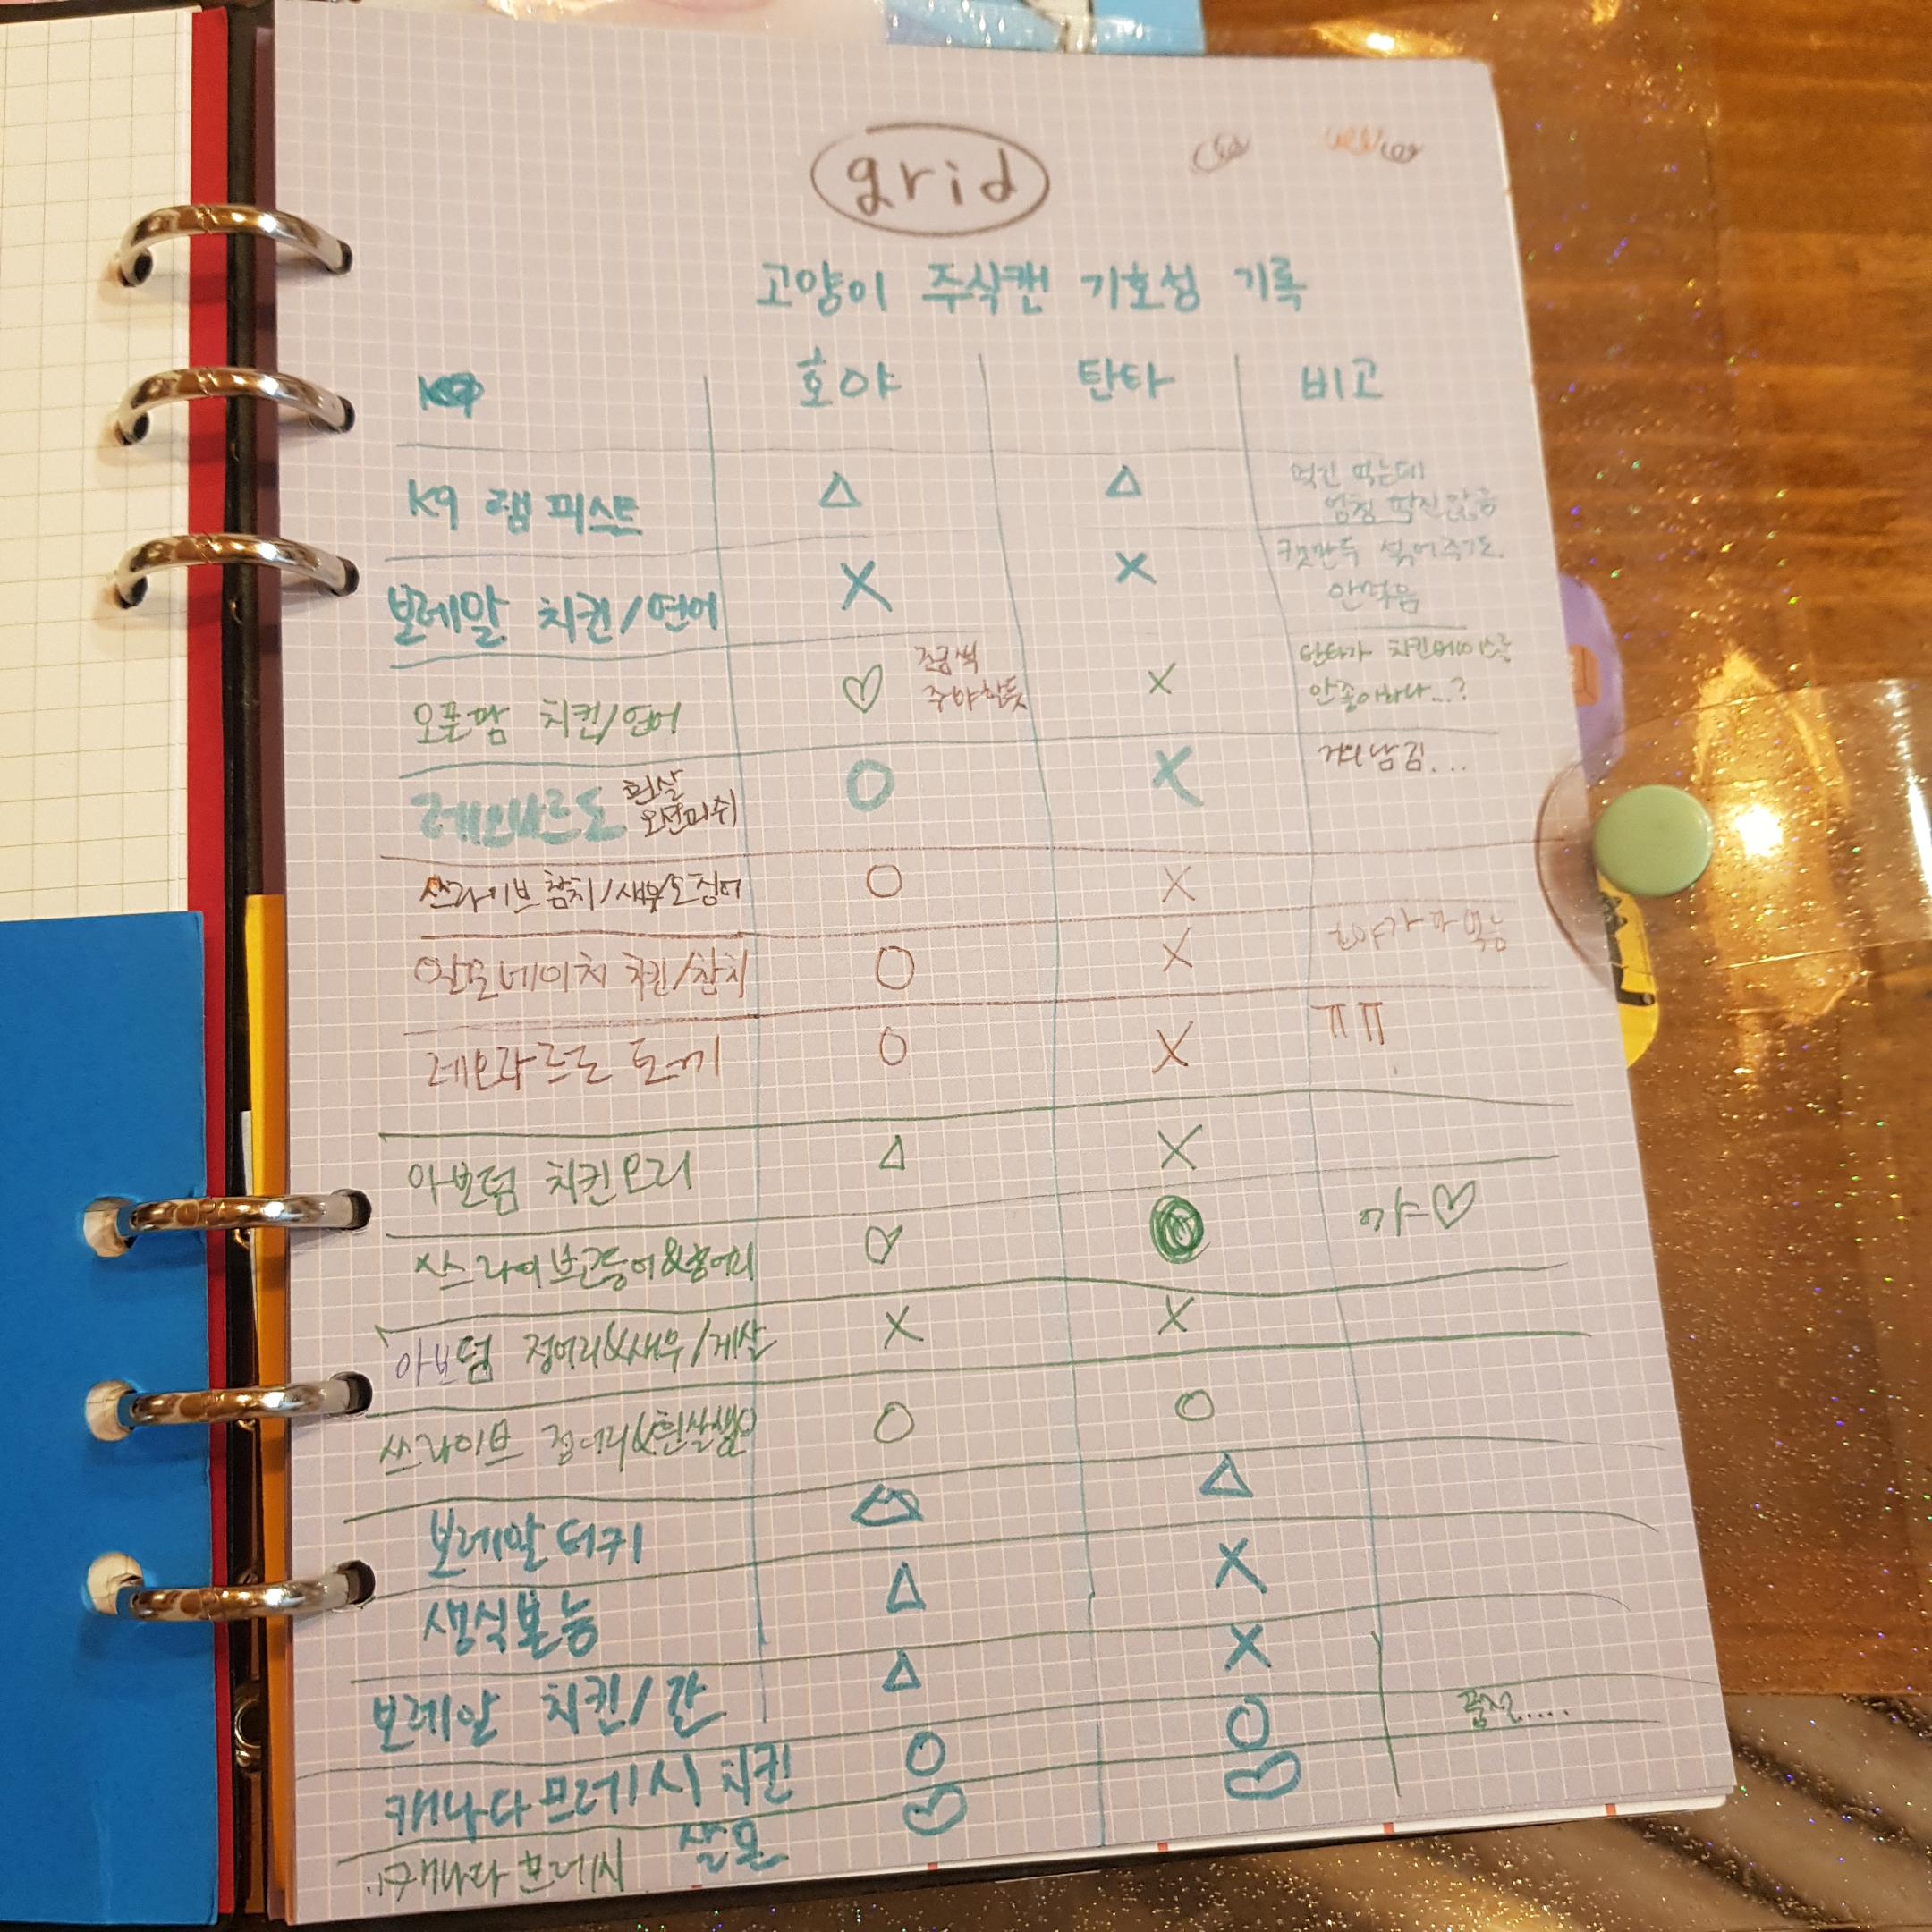 grid
고양이 주식캔 기호성 기록
호야 탄타 비고
K9 램 피스트 △ △ 먹긴 먹는데
엄청 땡기진 않음
보레알 치킨/연어 X X 캣만두 섞어주기도.
안먹음
오픈팜 치킨/연어 ♡ 조금씩 주야할듯 X 탄타가 치킨베이스를
안좋아하나...?
레오나르도 흰살 오션피쉬 O X 거의 남김...
쓰라이브 참치/새우/오징어 O X
알모네이처 치킨/참치 O X 호야가 다 먹음
레오나르도 토끼 O X ㅠㅠ
아보덤 치킨오리 △ X
쓰라이브 고등어&정어리 ♡ O 꺄~♡
아보덤 정어리&새우/게살 X X
쓰라이브 정어리&흰살생선 O O
보레알 터키 △ △
생식본능 △ X
보레알 치킨/간 △ X
캐나다프레시 치킨 O O 품절....
캐나다 프레시 살몬 ♡ ♡